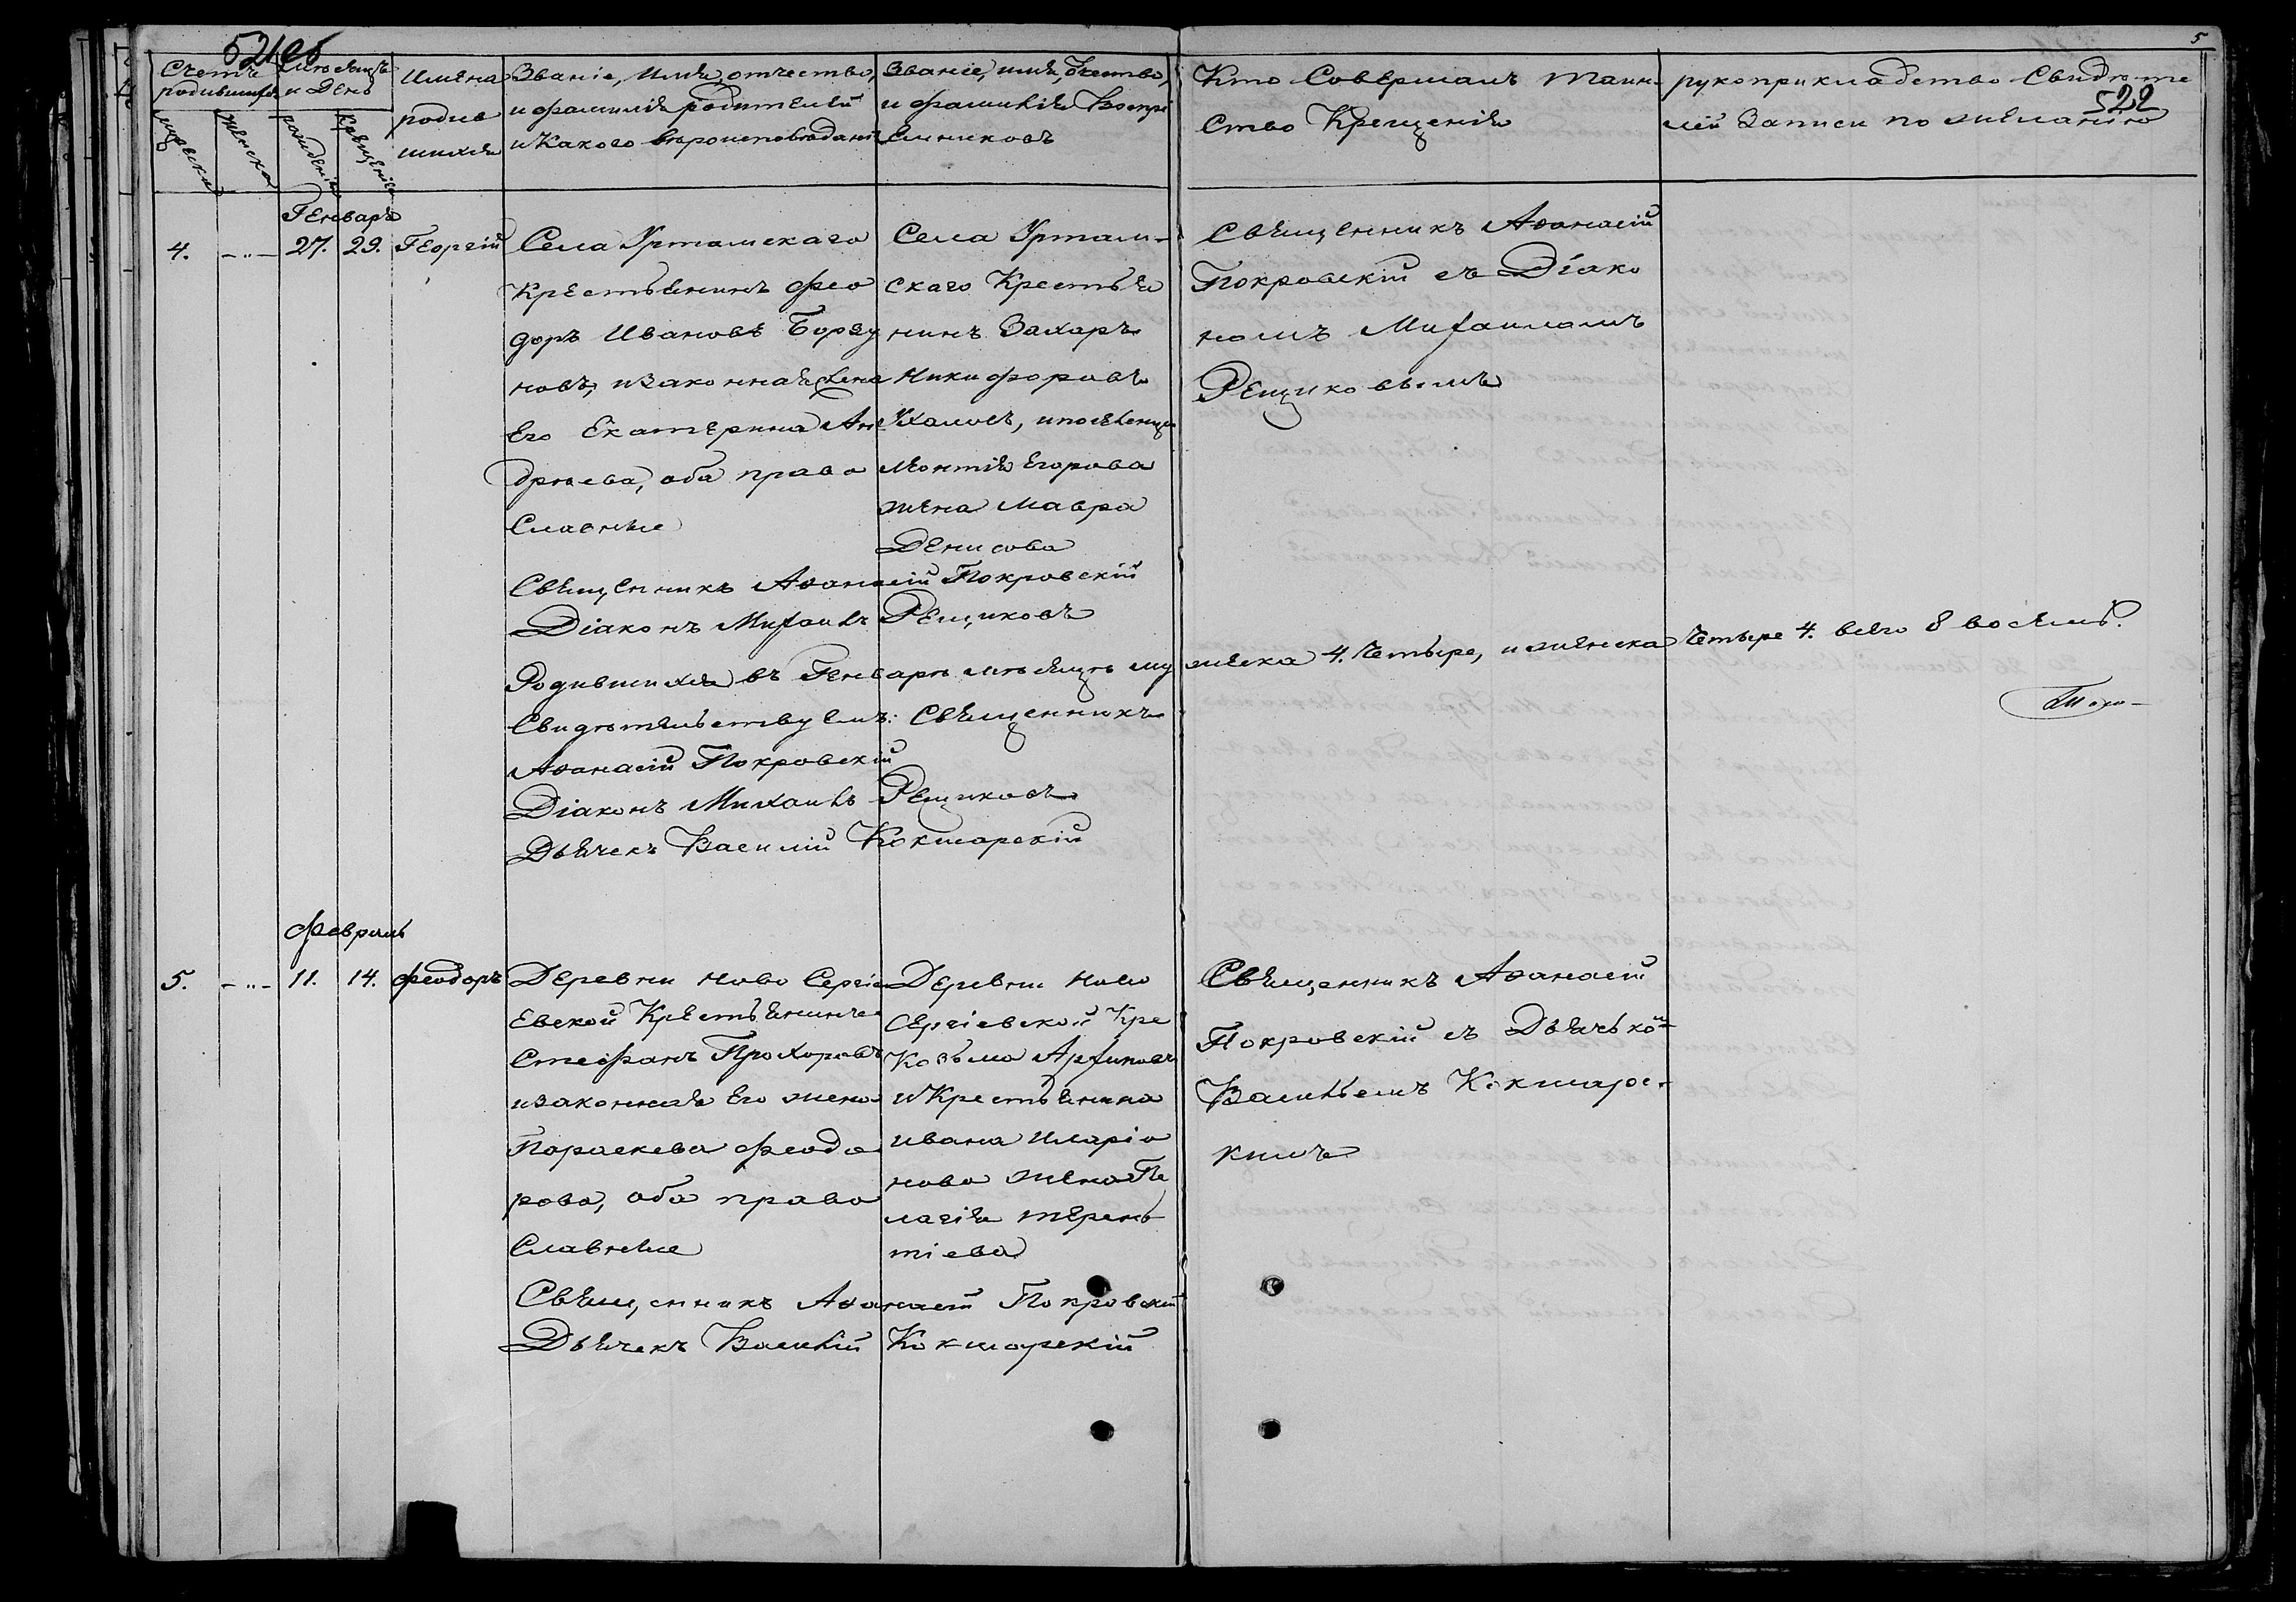 521об
5
522
Счетъ родившихся
Мѣсяцъ и День
мужеска
женска
рожденія
Крещенія
Имена родившихся
Званіе, Имя, отчество, и фамилія родителей и Какого вѣроисповѣданія
Званіе, имя, отчество, и фамилія Воспріемниковъ
Кто Совершалъ Таинство Крещенія
рукоприкладство Свидѣтелей Записи по желанію
Генварь
4. -"- 27. 29. Георгій
Села Урташскаго
Крестьянинъ Фео
доръ Ивановъ
новъ, и законная жена
Его Екатерина Ан
дрѣева, оба право
славные
Села Урташ-
скаго Крестья
нинъ Захаръ
Никифоровъ
Леонтія Егорова
жена Мавра
Денисова
Священникъ Аѳанасій
Покровскій съ Діако
номъ Михаиломъ
Рещиковымъ
Священникъ Аѳанасій Покровскій
Діаконъ Михаилъ Рещиковъ
Родившихся въ Генварѣ мѣсяцѣ мужеска 4. Четыре, и женска Четыре 4. всего 8 восемь.
Свидѣтельствуемъ: Священникъ
Аѳанасій Покровскій
Діаконъ Михаилъ Рещиковъ
Дьячекъ Василій Кокшарскій
Февраль
5. -"- 11. 14. Феодоръ
Деревни Ново Сергі
Евской Крестьянинъ
Стефанъ Прохоровъ
и законная Его жена
Параскева Феодо
рова, оба право
Славные
Деревни Ново
Сергіевской Кре
Козьма
и Крестьянина
Ивана Иларіо
нова жена Пе
лагія Терен
тіева
Священникъ Аѳанасій
Покровскій съ Дьячкомъ
Васильемъ Кокшарс-
кимъ
Священникъ Аѳанасій Покровскій
Дьячекъ Василій Кокшарскій